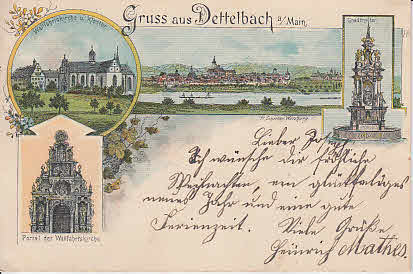 Gruss aus Dettelbach a/Main.
Wallfahrtskirche u. Kloster
Gnadenaltar
Portal der Wallfahrtskirche
Lieber
Ich wünsche dir fröhliche
Weihnachten, ein glückseliges
neues Jahr und eine gute
Ferienzeit. Viele Grüße
Heinrich Mathes.